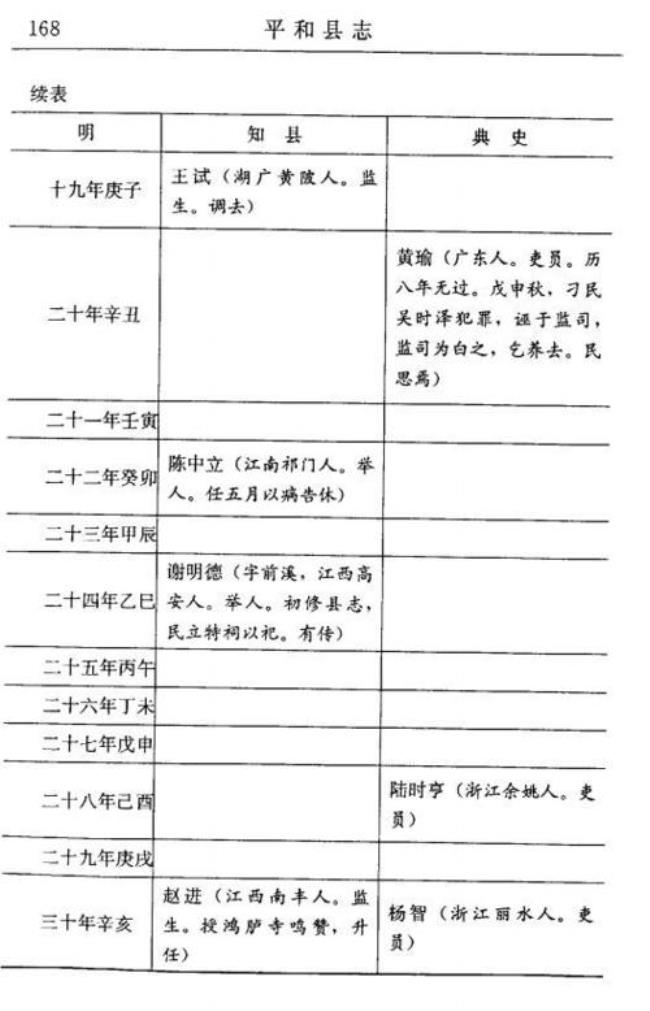 168
平和县志
续表
明 知县 典史
十九年庚子
王试（湖广黄陂人。监
生。调去）
二十年辛丑
黄瑜（广东人。吏员。历
八年无过。戊申秋，刁民
吴时泽犯罪，诬于监司，
监司为白之，乞养去。民
思焉）
二十一年壬寅
二十二年癸卯
陈中立（江南祁门人。举
人。任五月以病告休）
二十三年甲辰
二十四年乙巳
谢明德（字前溪，江西高
安人。举人。初修县志，
民立特祠以祀。有传）
二十五年丙午
二十六年丁未
二十七年戊申
二十八年己酉
陆时亨（浙江余姚人。吏
员）
二十九年庚戌
三十年辛亥
赵进（江西南丰人。监
生。授鸿胪寺鸣赞，升
任）
杨智（浙江丽水人。吏
员）